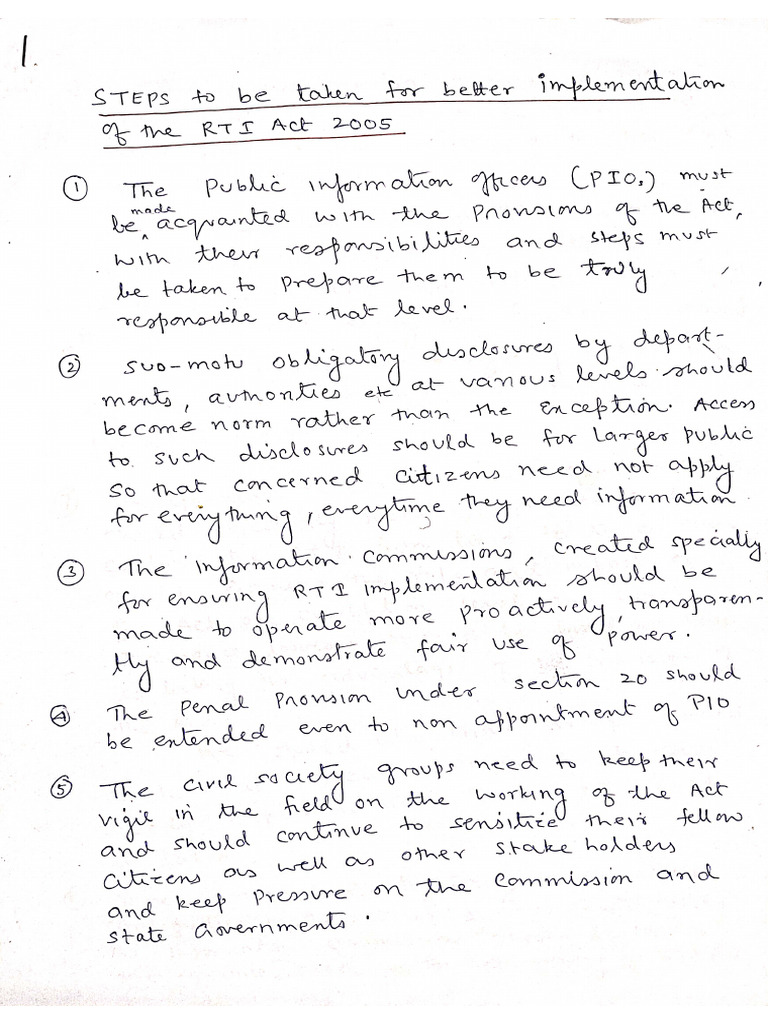 1.
STEPS to be taken for better implementation
of the RTI Act 2005
① The Public information officers (PIO,s) must
be made acquainted with the provisions of the Act,
with their responsibilities and steps must
be taken to prepare them to be truly
responsible at that level.
② suo-motu obligatory disclosures by depart-
ments, authorities etc at various levels should
become norm rather than the exception. Access
to such disclosures should be for larger public
so that concerned citizens need not apply
for everything, everytime they need information.
③ The information commissions, created specially
for ensuring RTI implementation should be
made to operate more proactively, transparen-
tly and demonstrate fair use of power.
④ The penal provision under section 20 should
be extended even to non appointment of PIO
⑤ The civil society groups need to keep their
vigil in the field on the working of the Act
and should continue to sensitize their fellow
citizens as well as other stake holders
and keep pressure on the commission and
state Governments.